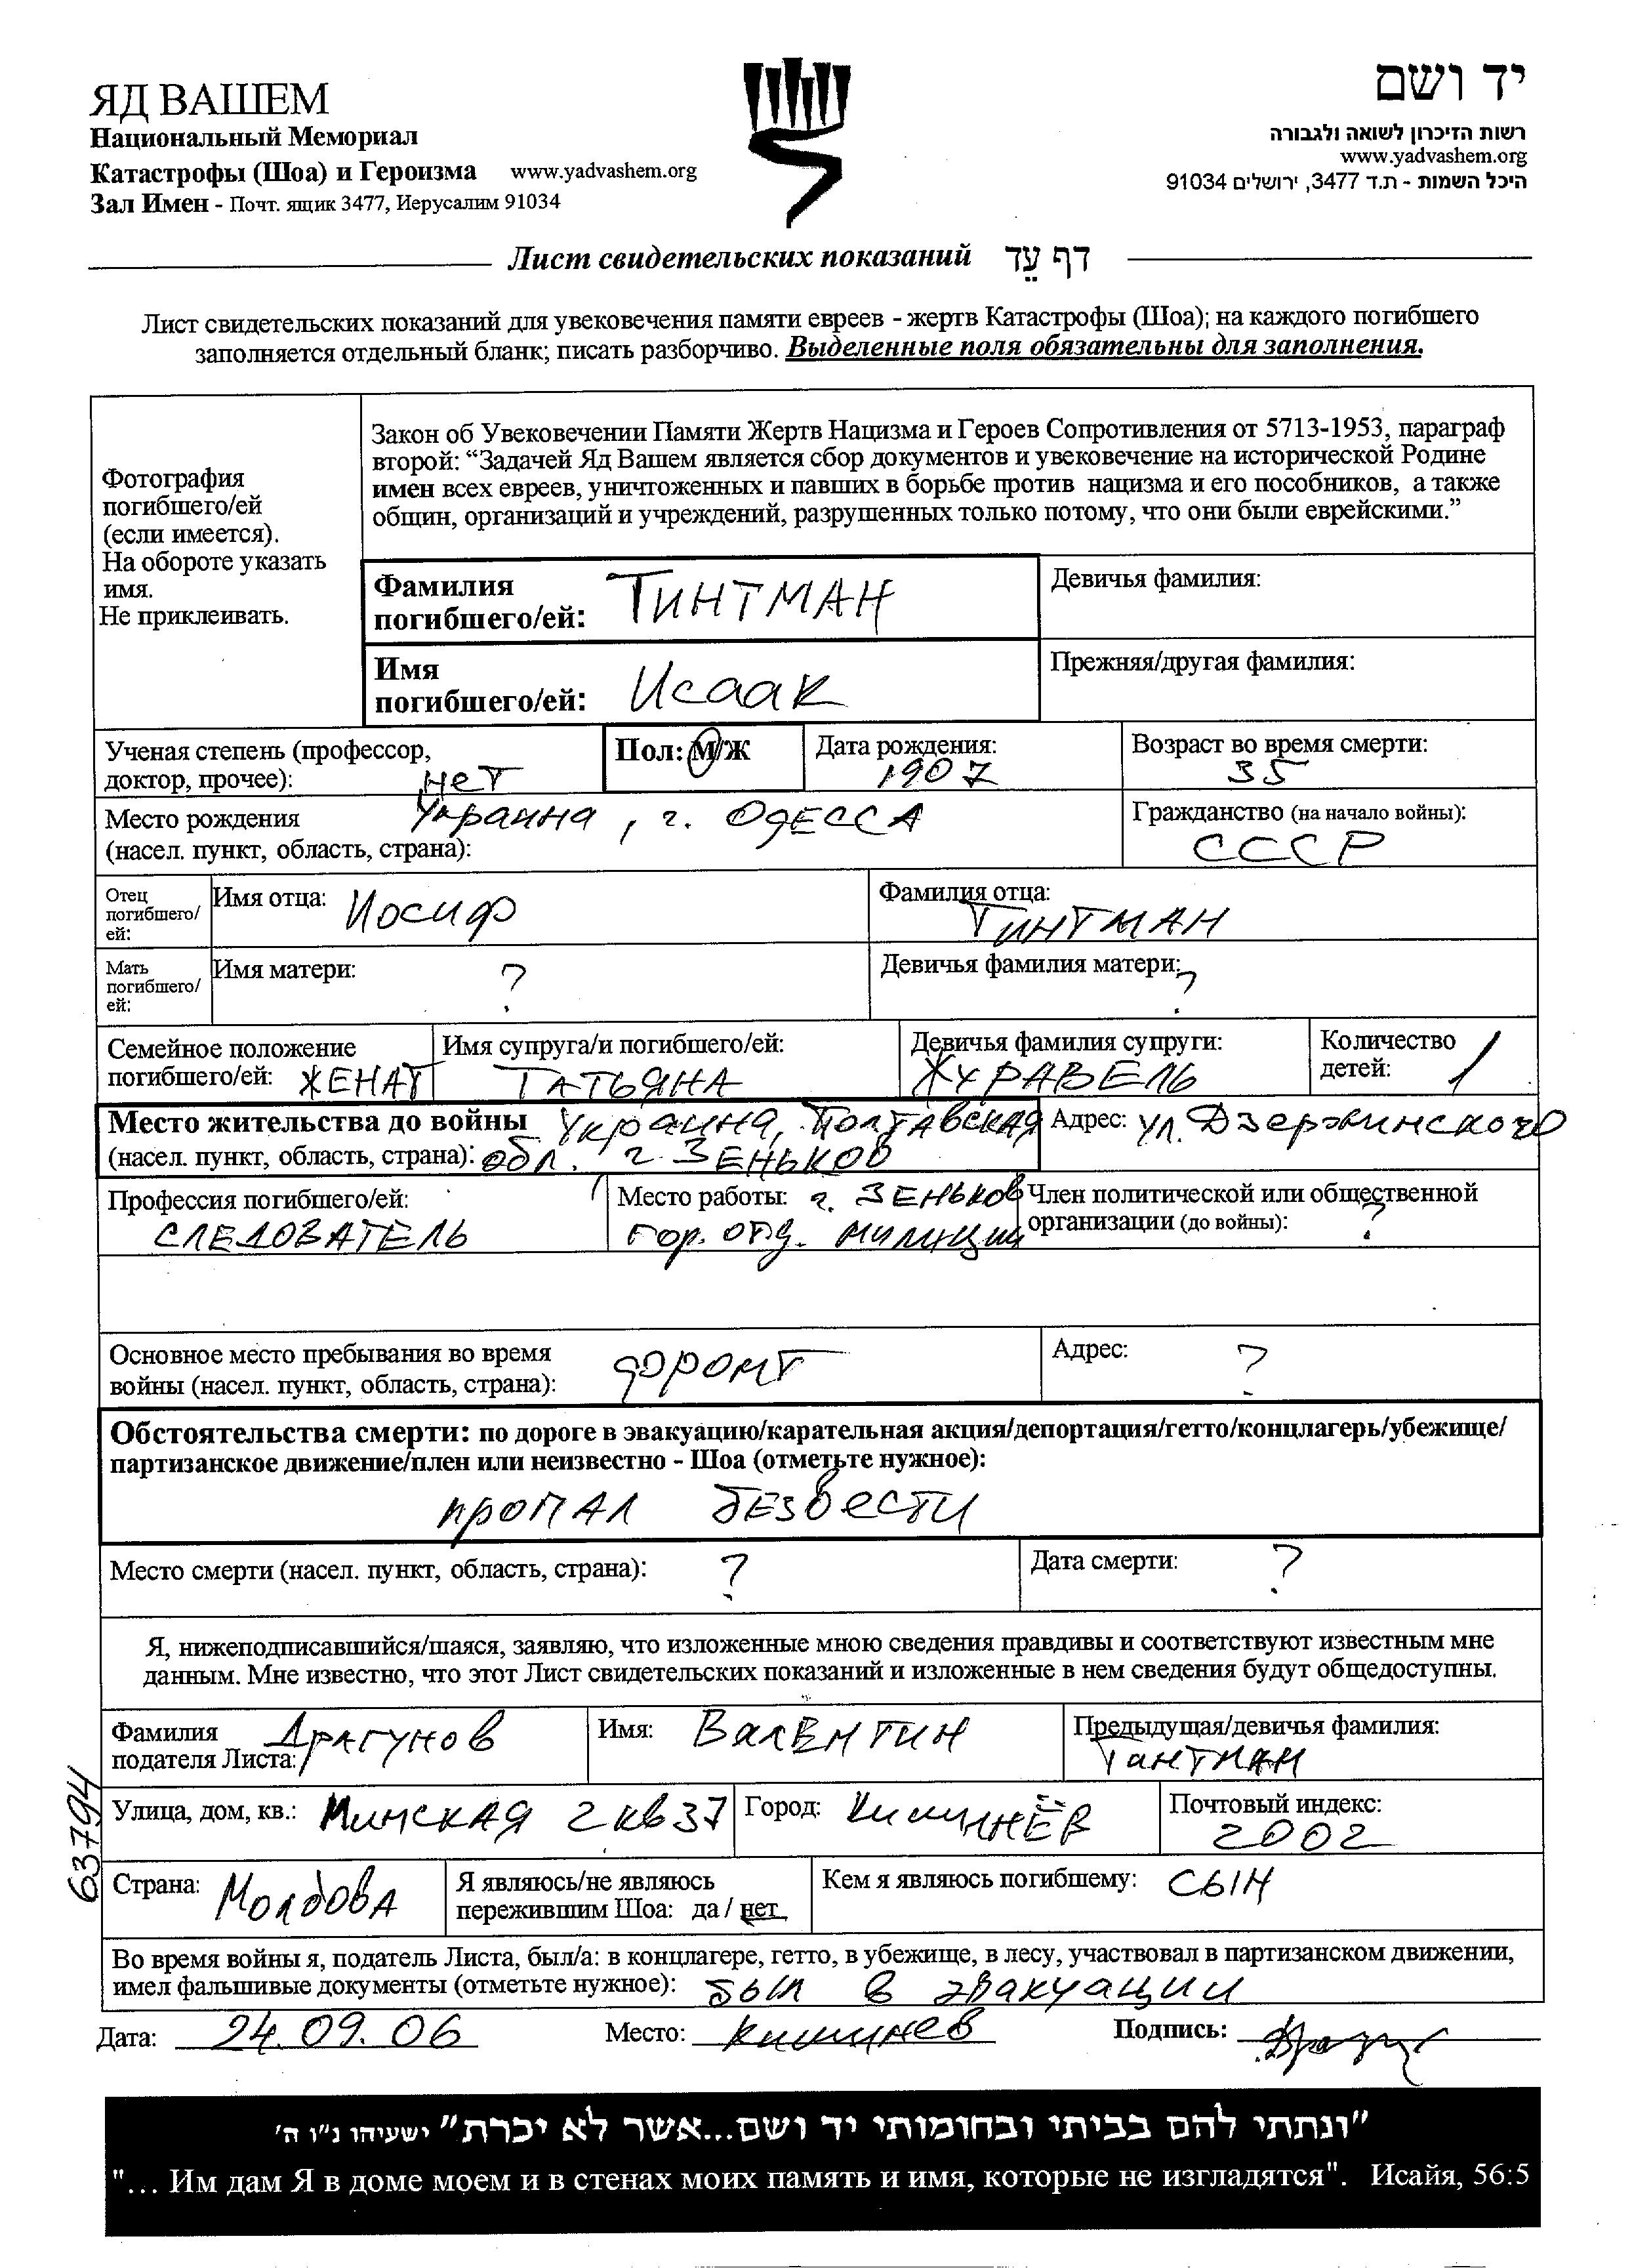 ЯД ВАШЕМ
Национальный Мемориал
Катастрофы (Шоа) и Героизма www.yadvashem.org
Зал Имен - Почт. ящик 3477, Иерусалим 91034
יד ושם
רשות הזיכרון לשואה ולגבורה
www.yadvashem.org
היכל השמות - ת.ד 3477, ירושלים 91034
Лист свидетельских показаний דף עֵד
Лист свидетельских показаний для увековечения памяти евреев - жертв Катастрофы (Шоа); на каждого погибшего
заполняется отдельный бланк; писать разборчиво. Выделенные поля обязательны для заполнения.
Фотография
погибшего/ей
(если имеется).
На обороте указать
имя.
Не приклеивать.
Закон об Увековечении Памяти Жертв Нацизма и Героев Сопротивления от 5713-1953, параграф
второй: “Задачей Яд Вашем является сбор документов и увековечение на исторической Родине
имен всех евреев, уничтоженных и павших в борьбе против нацизма и его пособников, а также
общин, организаций и учреждений, разрушенных только потому, что они были еврейскими.”
Фамилия
погибшего/ей: ТИНТМАН
Девичья фамилия:
Имя
погибшего/ей: Исаак
Прежняя/другая фамилия:
Ученая степень (профессор,
доктор, прочее): нет
Пол: М/Ж
Дата рождения:
1907
Возраст во время смерти:
35
Место рождения Украина, г. ОдЕССА
(насел. пункт, область, страна):
Гражданство (на начало войны):
СССР
Отец
погибшего/
ей:
Имя отца: Иосиф
Фамилия отца:
ТИНТМАН
Мать
погибшего/
ей:
Имя матери: ?
Девичья фамилия матери: ?
Семейное положение
погибшего/ей: ЖЕНАТ
Имя супруга/и погибшего/ей:
ТАТЬЯНА
Девичья фамилия супруги:
ЖУРАВЕЛЬ
Количество
детей: 1
Место жительства до войны Украина, Полтавская
(насел. пункт, область, страна): обл. г. ЗЕНЬКОВ
Адрес: ул. Дзержинского
Профессия погибшего/ей:
СЛЕДОВАТЕЛЬ
Место работы: г. ЗЕНЬКОВ
гор. отд. милиции
Член политической или общественной
организации (до войны): ?
Основное место пребывания во время
войны (насел. пункт, область, страна): ФРОНТ
Адрес: ?
Обстоятельства смерти: по дороге в эвакуацию/карательная акция/депортация/гетто/концлагерь/убежище/
партизанское движение/плен или неизвестно - Шоа (отметьте нужное):
пропал безвести
Место смерти (насел. пункт, область, страна): ?
Дата смерти: ?
Я, нижеподписавшийся/шаяся, заявляю, что изложенные мною сведения правдивы и соответствуют известным мне
данным. Мне известно, что этот Лист свидетельских показаний и изложенные в нем сведения будут общедоступны.
Фамилия
подателя Листа: Драгунов
Имя: ВалЕНТИН
Предыдущая/девичья фамилия:
ТинТМАН
63794
Улица, дом, кв.: Минская 2 кв 37
Город: Кишинёв
Почтовый индекс:
2002
Страна: Молдова
Я являюсь/не являюсь
пережившим Шоа: да / нет
Кем я являюсь погибшему: сын
Во время войны я, податель Листа, был/а: в концлагере, гетто, в убежище, в лесу, участвовал в партизанском движении,
имел фальшивые документы (отметьте нужное): был в эвакуации
Дата: 24.09.06 Место: Кишинев Подпись:
"ונתתי להם בביתי ובחומותי יד ושם...אשר לא יכרת" ישעיהו נ"ו ה'
"... Им дам Я в доме моем и в стенах моих память и имя, которые не изгладятся". Исайя, 56:5